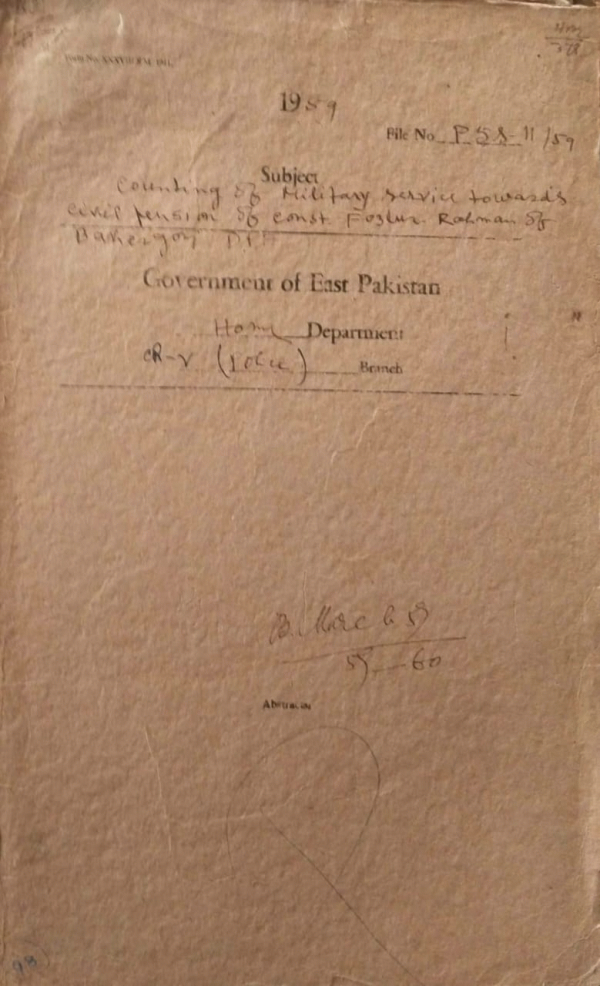 1959
File No. P5S-11/59
Subject
Counting of Military service towards
civil pension of const. Fozlur Rahman of
Government of East Pakistan
Home Department
CR-V (Police) Branch
59-60
98